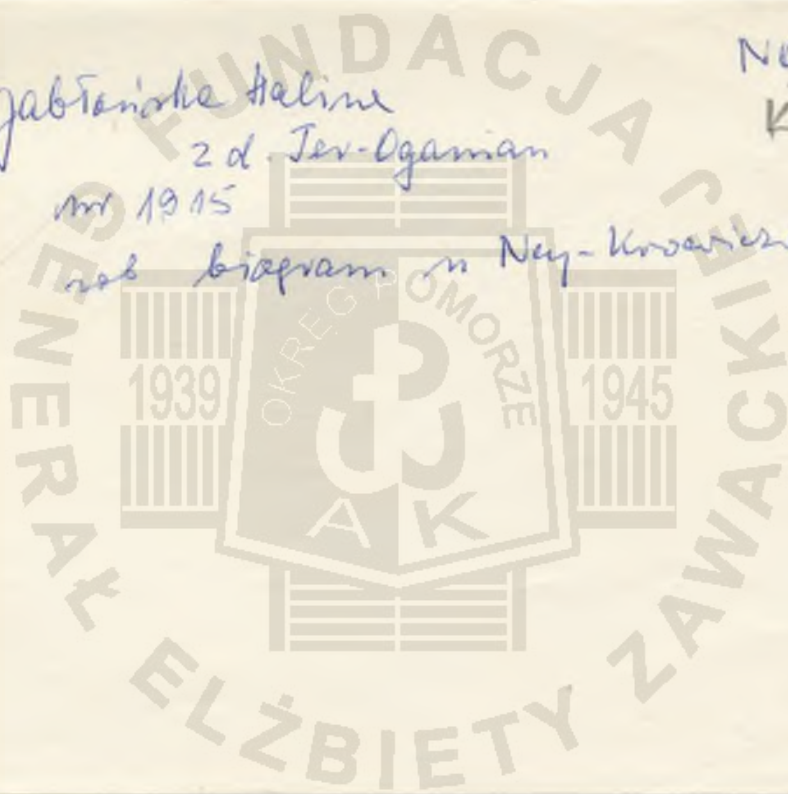 Jabłońska Halina
z d. Ter-Oganian
ur 1915
zob biogram u Ney-Krwawicz
Ney
K
FUNDACJA GENERAŁ ELŻBIETY ZAWACKIEJ
OKRĘG POMORZE
1939
1945
AK